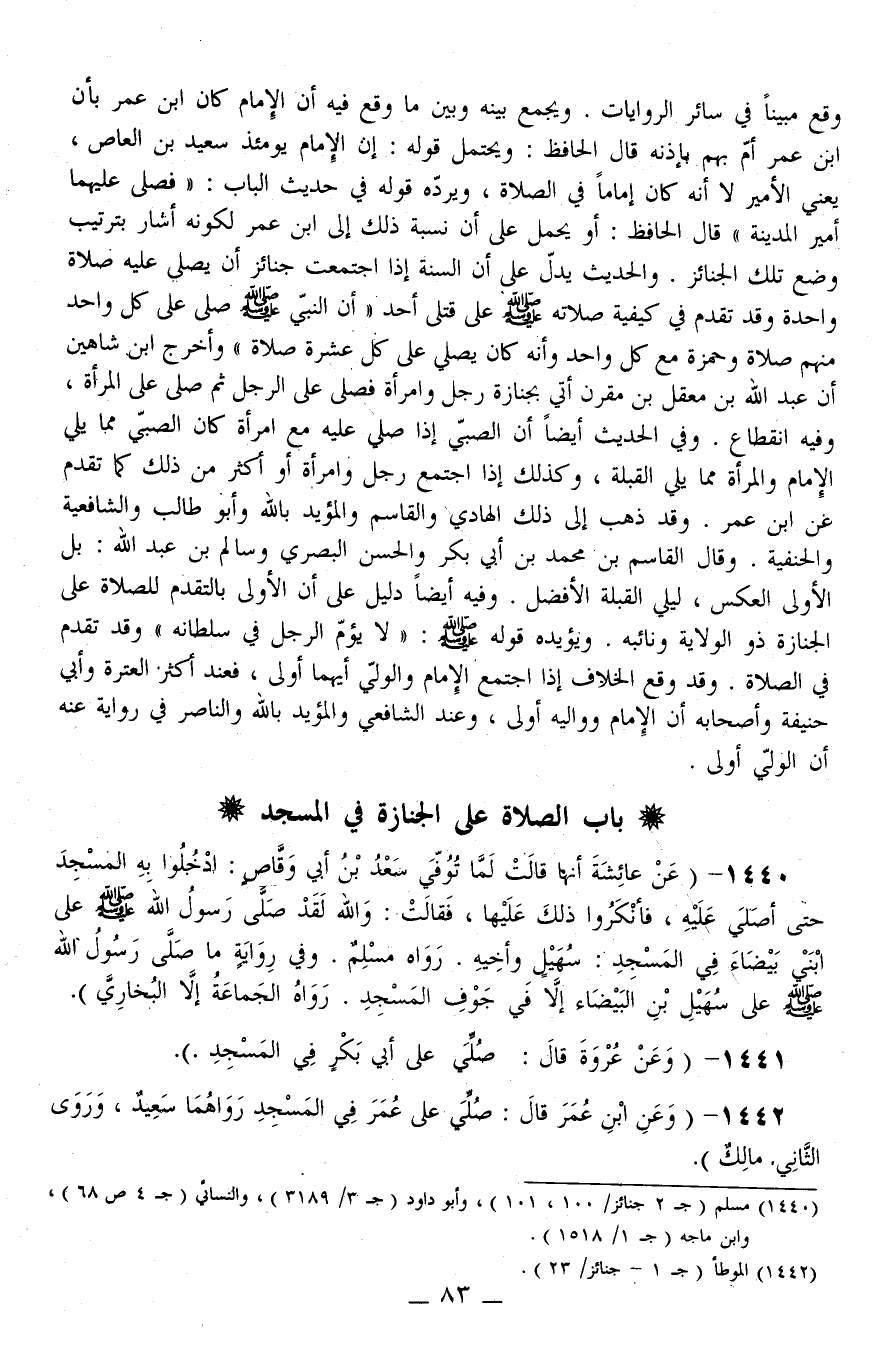 وقع مبيناً في سائر الروايات . ويجمع بينه وبين ما وقع فيه أن الإمام كان ابن عمر بأن
ابن عمر أمّ بهم بإذنه قال الحافظ : ويحتمل قوله : إن الإمام يومئذ سعيد بن العاص ،
يعني الأمير لا أنه كان إماماً في الصلاة ، ويردّه قوله في حديث الباب : « فصلى عليهما
أمير المدينة » قال الحافظ : أو يحمل على أن نسبة ذلك إلى ابن عمر لكونه أشار بترتيب
وضع تلك الجنائز . والحديث يدلّ على أن السنة إذا اجتمعت جنائز أن يصلي عليه صلاة
واحدة وقد تقدم في كيفية صلاته ﷺ على قتلى أحد « أن النبيّ ﷺ صلى على كل واحد
منهم صلاة وحمزة مع كل واحد وأنه كان يصلي على كل عشرة صلاة » وأخرج ابن شاهين
أن عبد الله بن معقل بن مقرن أتي بجنازة رجل وامرأة فصلى على الرجل ثم صلى على المرأة ،
وفيه انقطاع . وفي الحديث أيضاً أن الصبيّ إذا صلي عليه مع امرأة كان الصبيّ مما يلي
الإمام والمرأة مما يلي القبلة ، وكذلك إذا اجتمع رجل وامرأة أو أكثر من ذلك كما تقدم
عن ابن عمر . وقد ذهب إلى ذلك الهادي والقاسم والمؤيد بالله وأبو طالب والشافعية
والحنفية . وقال القاسم بن محمد بن أبي بكر والحسن البصري وسالم بن عبد الله : بل
الأولى العكس ، ليلي القبلة الأفضل . وفيه أيضاً دليل على أن الأولى بالتقدم للصلاة على
الجنازة ذو الولاية ونائبه . ويؤيده قوله ﷺ : « لا يؤمّ الرجل في سلطانه » وقد تقدم
في الصلاة . وقد وقع الخلاف إذا اجتمع الإمام والوليّ أيهما أولى ، فعند أكثر العترة وأبي
حنيفة وأصحابه أن الإمام وواليه أولى ، وعند الشافعي والمؤيد بالله والناصر في رواية عنه
أن الوليّ أولى .
✹ باب الصلاة على الجنازة في المسجد ✹
١٤٤٠- ( عَنْ عائِشَةَ أنها قالَتْ لَمَّا تُوُفّيَ سَعْدُ بْنُ أبي وَقَّاصٍ : ادْخُلُوا بِهِ المَسْجِدَ
حتى أصَلِيَ عَلَيْهِ ، فأنْكَرُوا ذلكَ عَلَيْها ، فَقالَتْ : وَالله لَقَدْ صَلَّى رَسولُ الله ﷺ على
ابْنَيْ بَيْضَاءَ فِي المَسْجِدِ : سُهَيْلٍ وأخِيهِ . رَوَاه مسْلِمٌ . وفي رِوَايَةٍ ما صَلَّى رَسُولُ الله
ﷺ على سُهَيْلِ بْنِ البَيْضَاء إلَّا في جَوْفِ المَسْجِدِ . رَوَاهُ الجَماعَةُ إلَّا البُخارِيَّ ).
١٤٤١- ( وَعَنْ عُرْوَةَ قالَ : صُلِّيَ على أبي بَكْرٍ فِي المَسْجِدِ .).
١٤٤٢- ( وَعَنِ ابْنِ عُمَرَ قالَ : صُلِّيَ على عُمَرَ فِي المَسْجِدِ رَوَاهُمَا سَعِيدٌ ، وَرَوَى
الثَّانِي. مالِكٌ ).
(١٤٤٠) مسلم ( جـ ٢ جنائز/ ١٠٠ ، ١٠١ ) ، وأبو داود ( جـ ٣/ ٣١٨٩ ) ، والنسائي ( جـ ٤ ص ٦٨ ) ،
وابن ماجه ( جـ ١/ ١٥١٨ ) .
(١٤٤٢) الموطأ ( جـ ١ - جنائز/ ٢٣ ) .
_ ٨٣ _